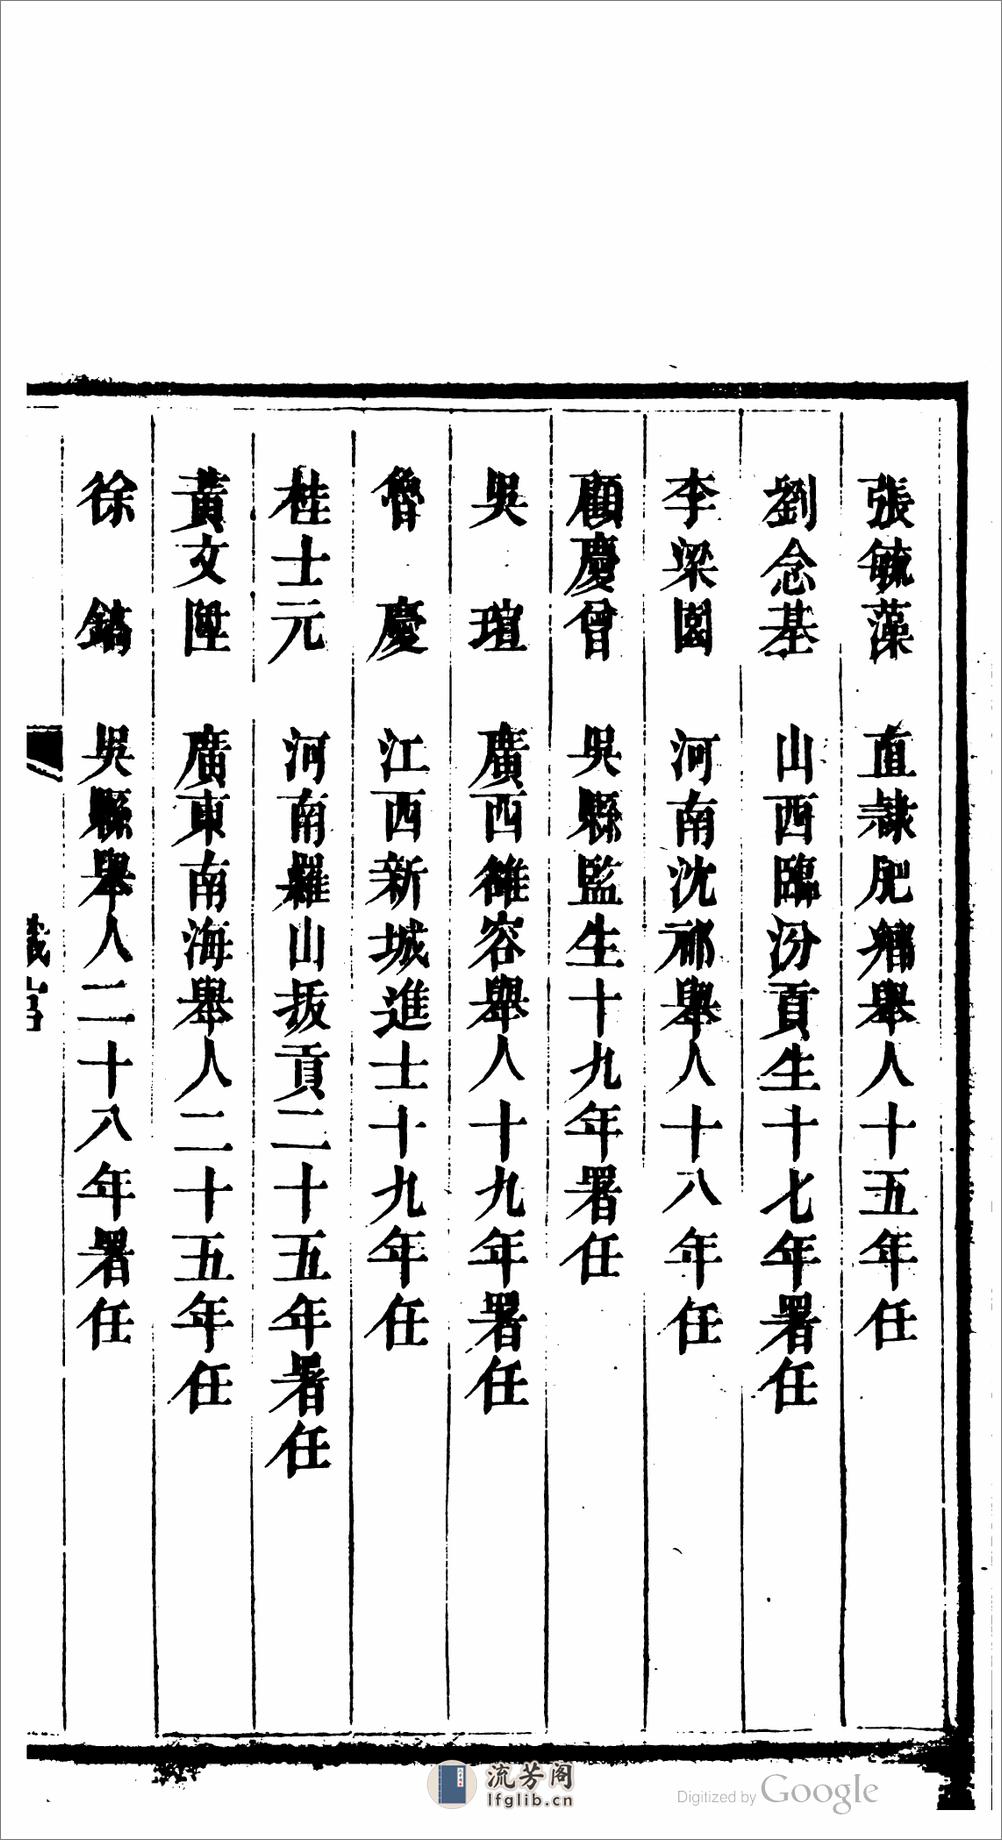 張毓藻 直隸肥鄉舉人十五年任
劉念基 山西臨汾貢生十七年署任
李梁園 河南沈邱舉人十八年任
顧慶曾 吳縣監生十九年署任
吳瑄 廣西雒容舉人十九年署任
魯慶 江西新城進士十九年任
桂士元 河南羅山拔貢二十五年署任
黃文陞 廣東南海舉人二十五年任
徐鏞 吳縣舉人二十八年署任
流芳阁
lfglib.cn
Digitized by Google